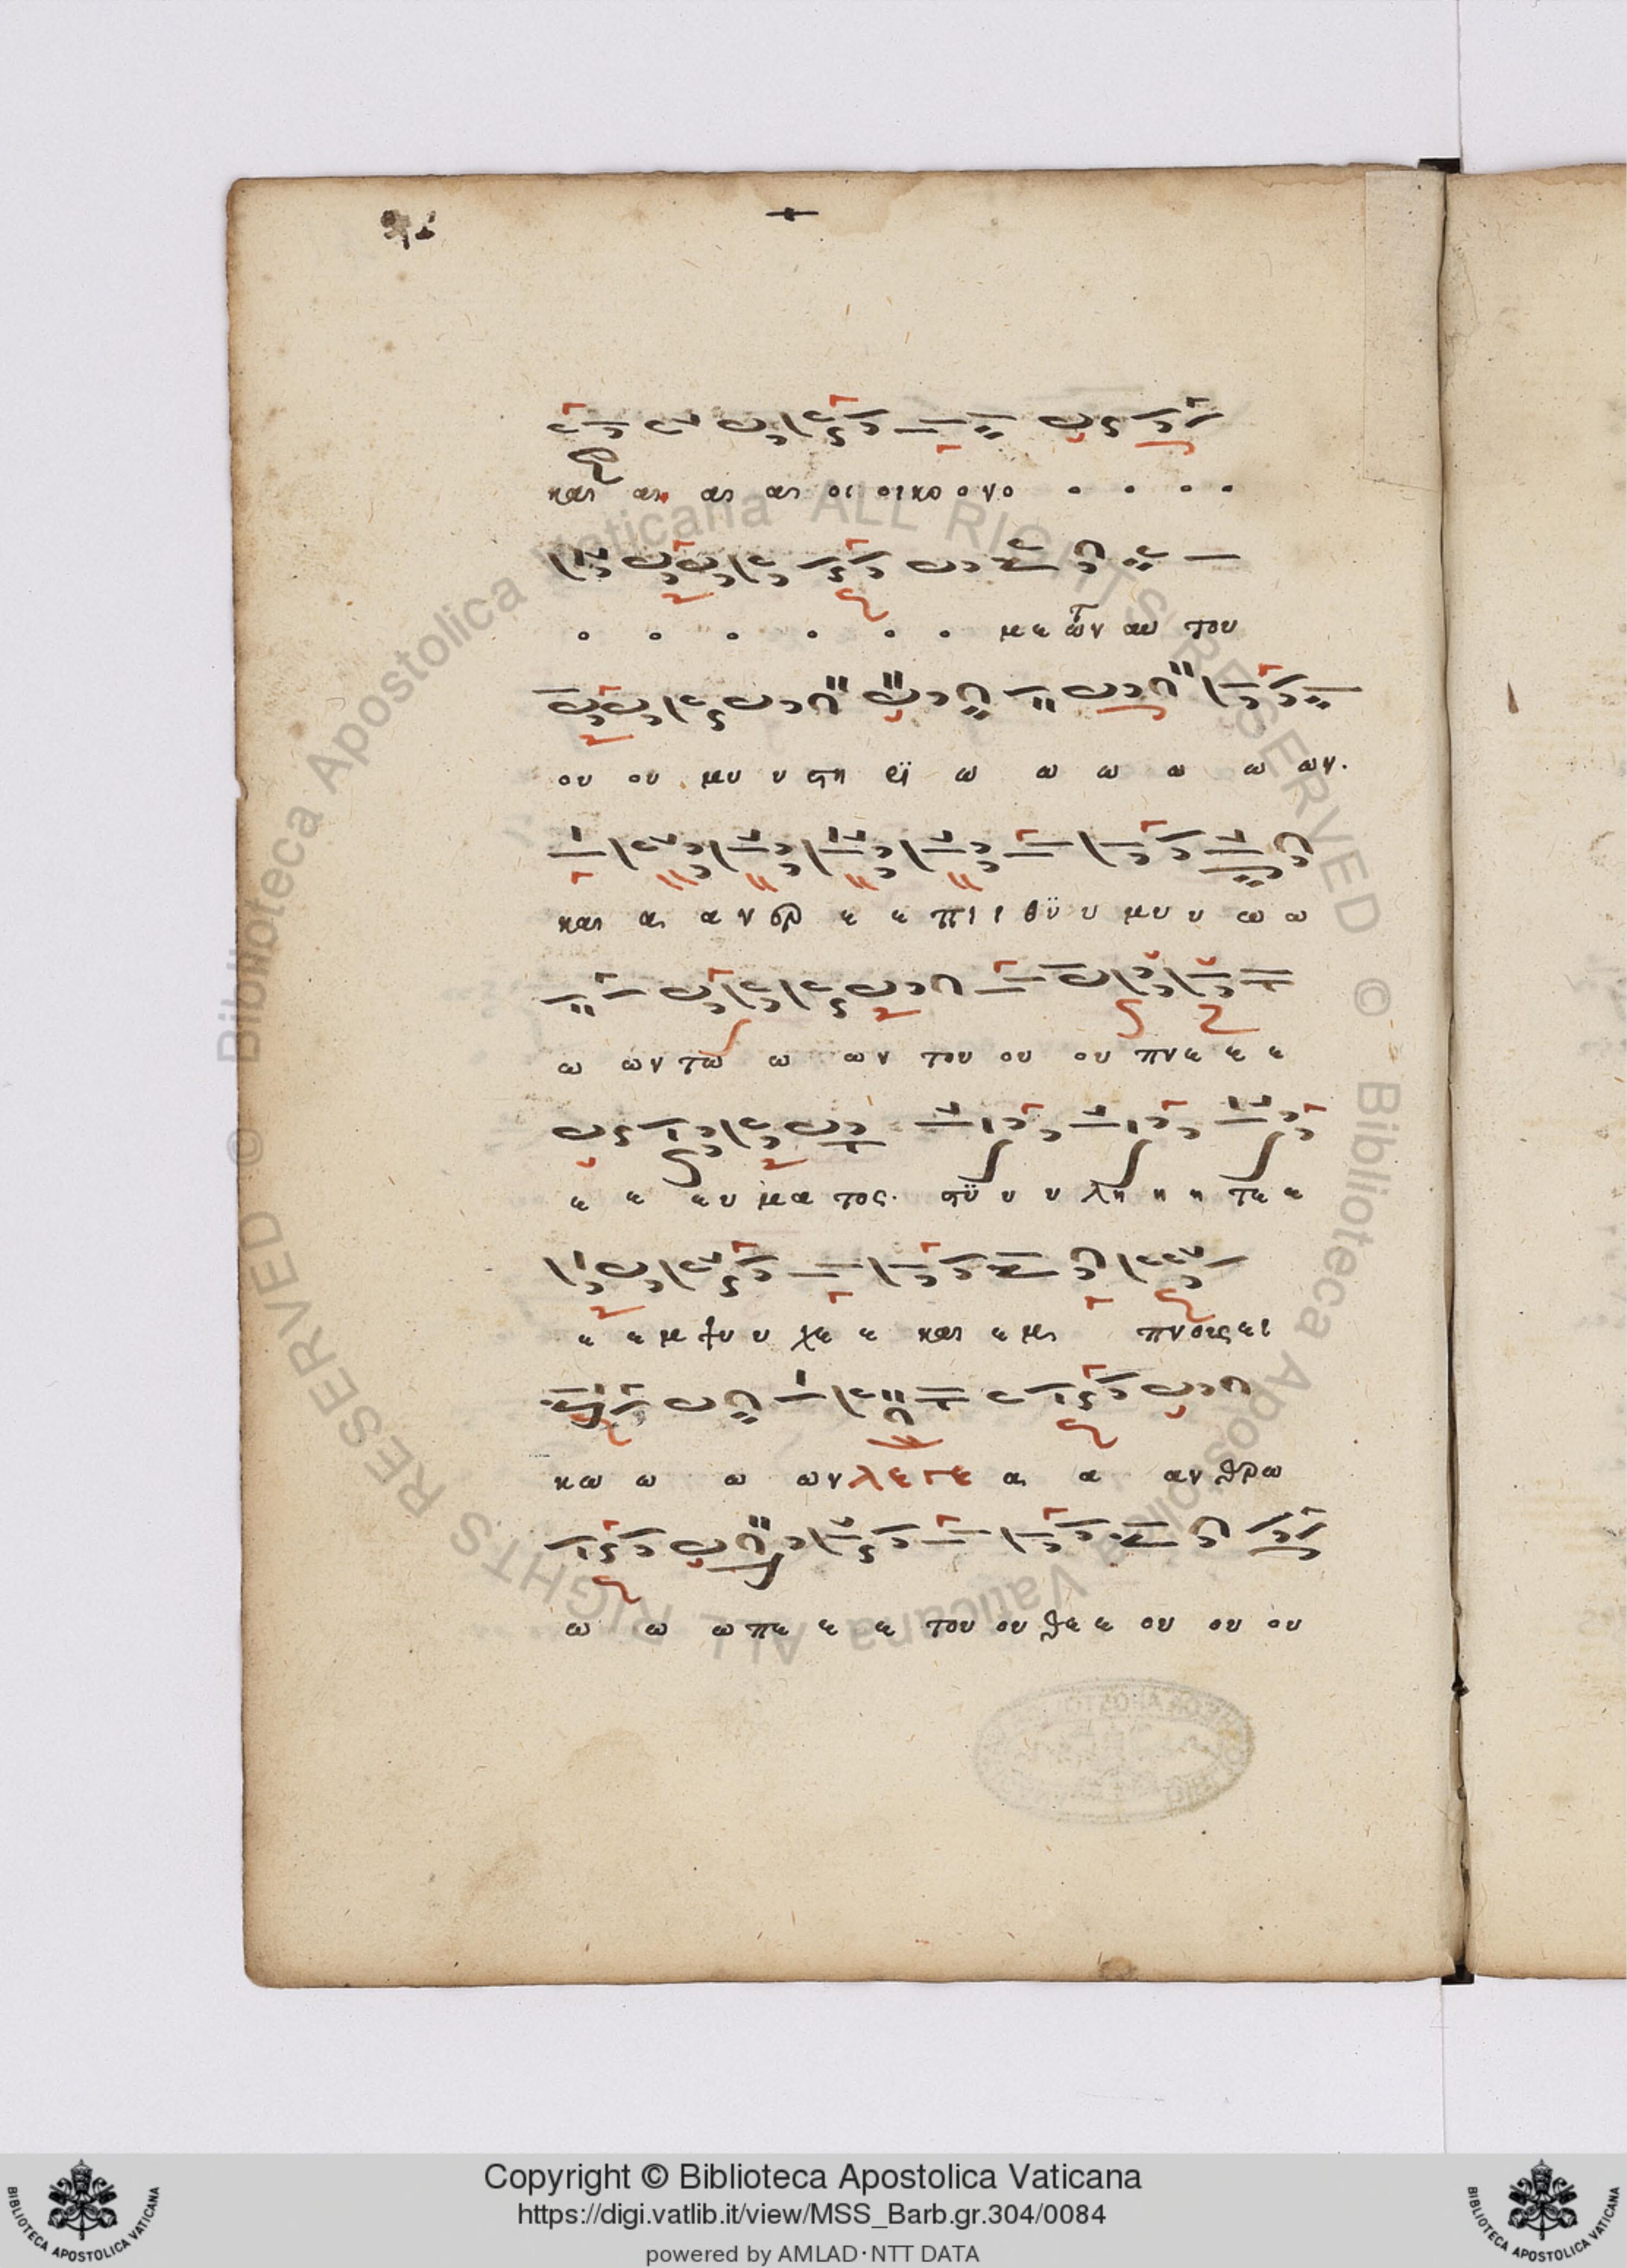 και αι αι αι οι οικο ο νο ο ο ο ο
ο ο ο ο ο ο με ε ων αυ του
ου ου μυ υ στη ρϊ ω ω ω ω ω ων.
και αι α ν δρ ε ε πι ι θϋ υ μυ υ ω ω
ω ων τω ω ων του ου ου πνε ε ε
ε ε ευ μα τος. σϋ υ υ λη η η τε ε
ε ε μ ψυ υ χε ε και ε με πνοις ει
κω ω ω ων λεγε α α αν θρω
ω ω ω πε ε ε του ου θε ε ου ου ου
Copyright © Biblioteca Apostolica Vaticana
https://digi.vatlib.it/view/MSS_Barb.gr.304/0084
powered by AMLAD·NTT DATA
Biblioteca Apostolica Vaticana ALL RIGHTS RESERVED © Biblioteca Apostolica Vaticana ALL RIGHTS RESERVED ©
BIBLIOTECA APOSTOLICA VATICANA
BIBLIOTECA APOSTOLICA VATICANA